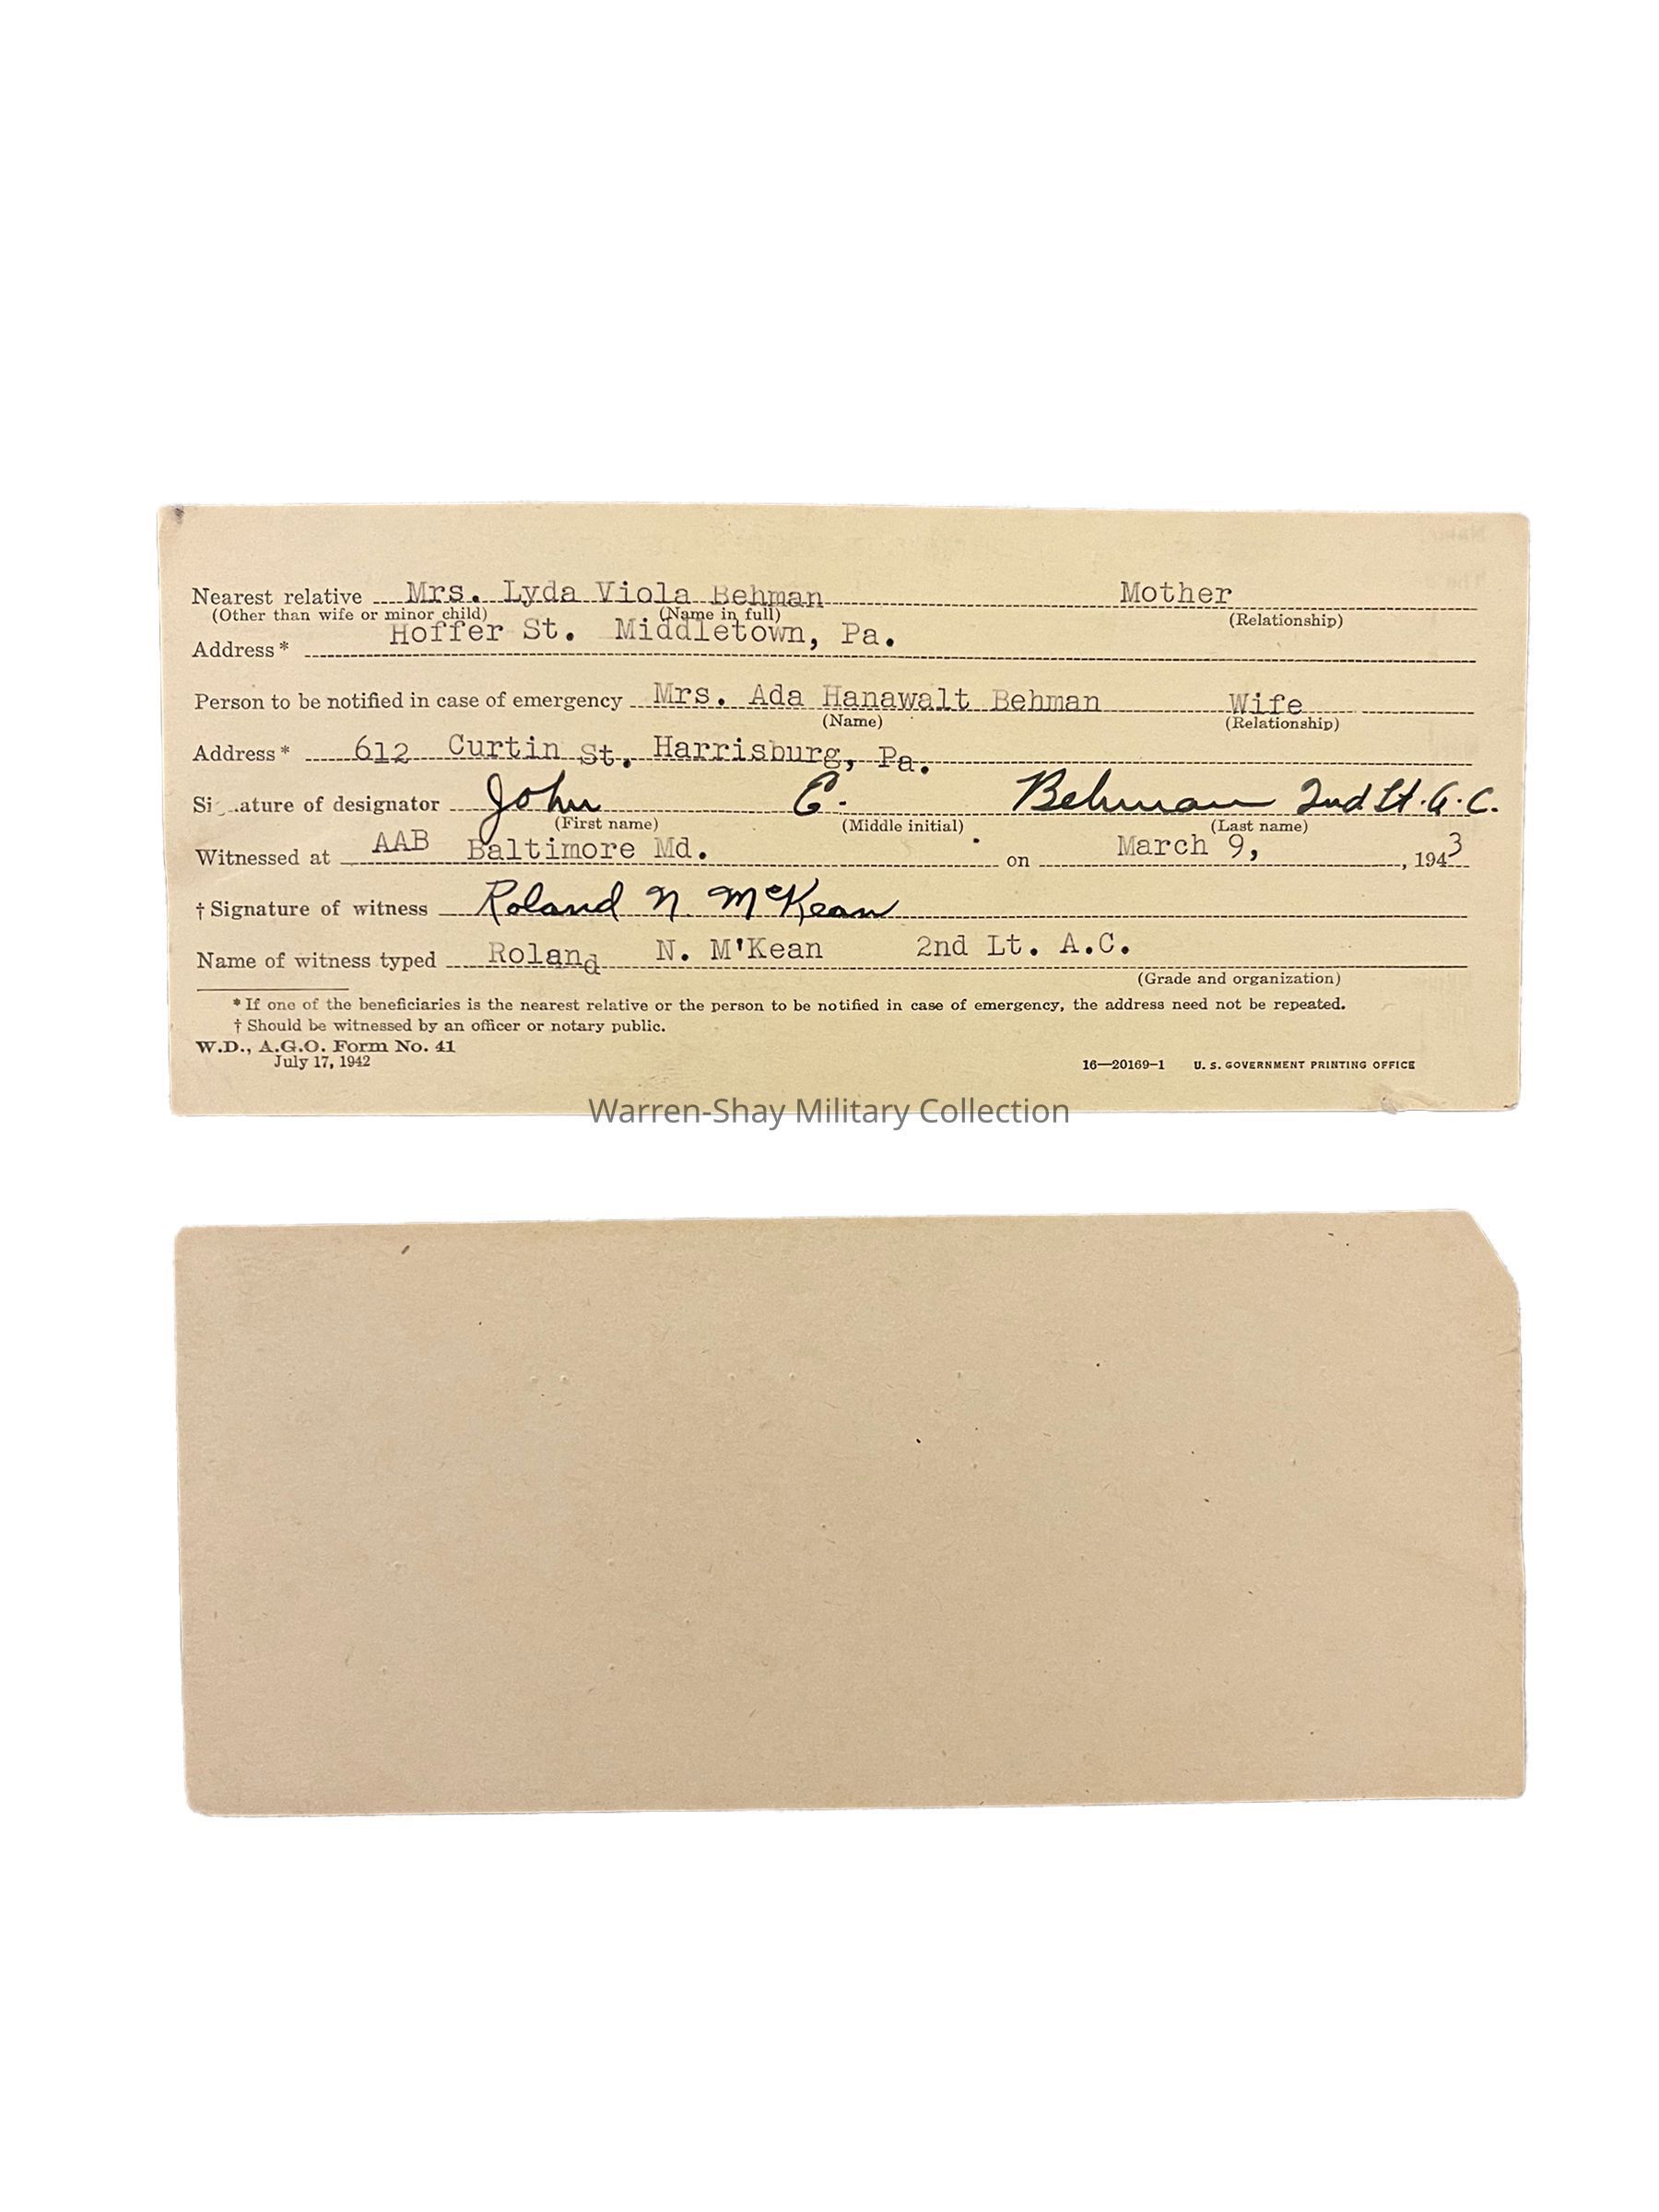 Nearest relative Mrs. Lyda Viola Behman Mother
(Other than wife or minor child) (Name in full) (Relationship)
Address * Hoffer St. Middletown, Pa.
Person to be notified in case of emergency Mrs. Ada Hanawalt Behman Wife
(Name) (Relationship)
Address * 612 Curtin St. Harrisburg, Pa.
Si ature of designator John E. Behman 2nd Lt. A.C.
(First name) (Middle initial) (Last name)
Witnessed at AAB Baltimore Md. on March 9, , 1943
† Signature of witness Roland N McKean
Name of witness typed Roland N. M'Kean 2nd Lt. A.C.
(Grade and organization)
* If one of the beneficiaries is the nearest relative or the person to be notified in case of emergency, the address need not be repeated.
† Should be witnessed by an officer or notary public.
W.D., A.G.O. Form No. 41
July 17, 1942
16—20169-1 U. S. GOVERNMENT PRINTING OFFICE
Warren-Shay Military Collection